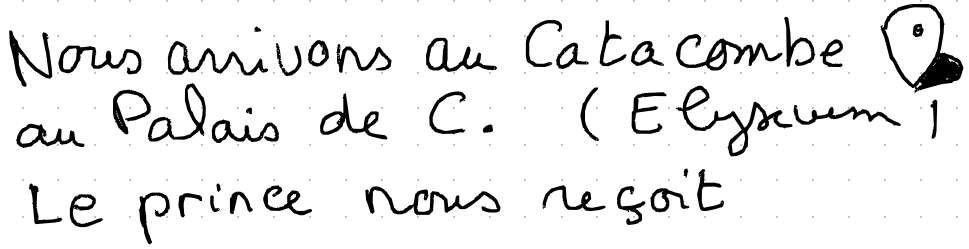 Nous arrivons au Catacombe
au Palais de C. (Elyseum)
Le prince nous reçoit